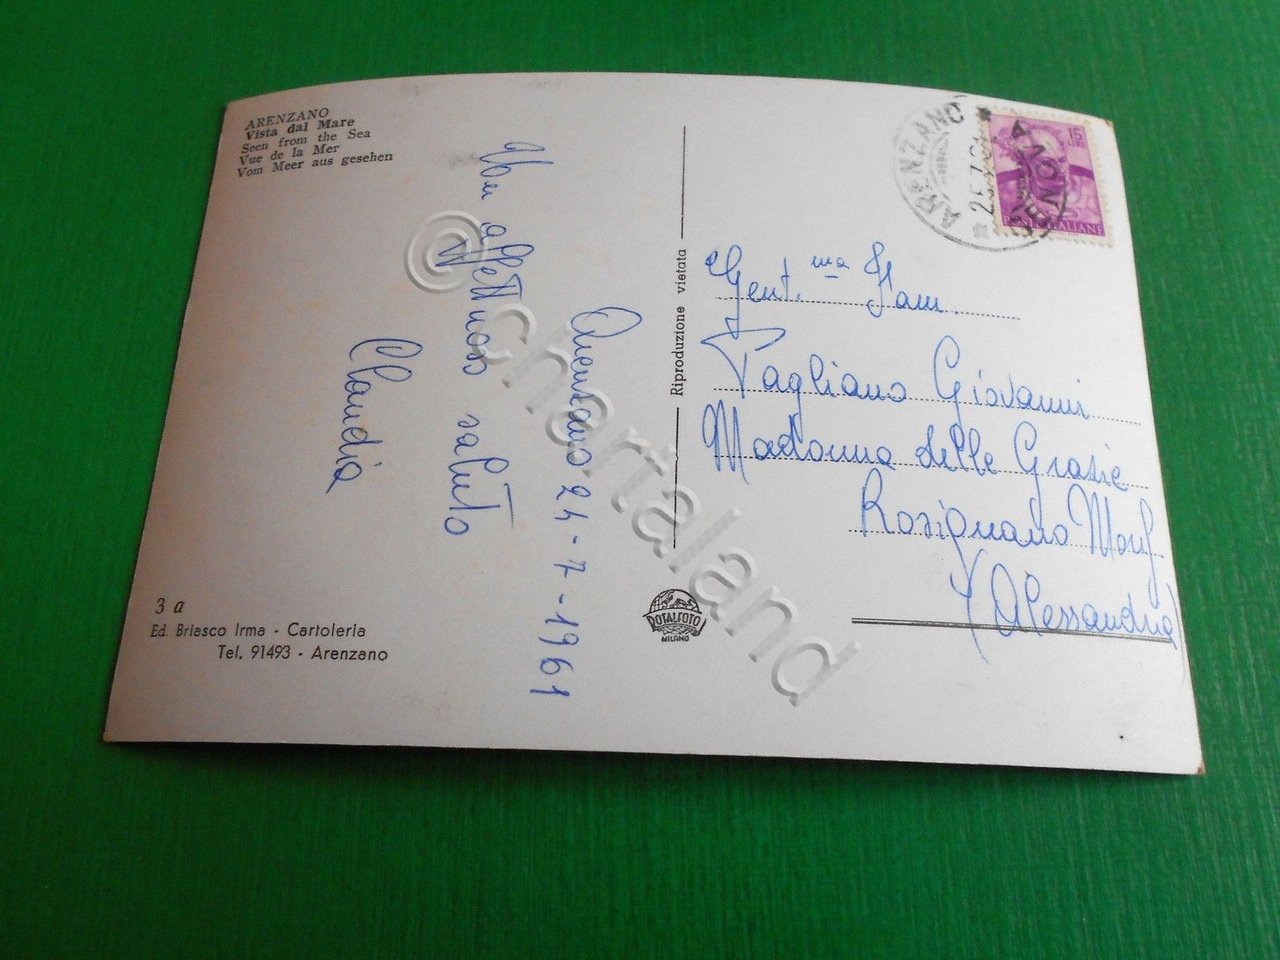 ARENZANO
Vista dal Mare
Seen from the Sea
Vue de la Mer
Vom Meer aus gesehen
Arenzano 24-7-1961
Un affettuoso saluto
Claudia
3 a
Ed. Briasco Irma - Cartoleria
Tel. 91493 - Arenzano
Riproduzione vietata
ROTALFOTO
MILANO
ARENZANO
25.7.61
GENOVA
15
LIRE
POSTE ITALIANE
Gent.ma Fam.
Tagliano Giovanni
Madonna delle Grazie
Rosignano Monf.
(Alessandria)
© Chartaland